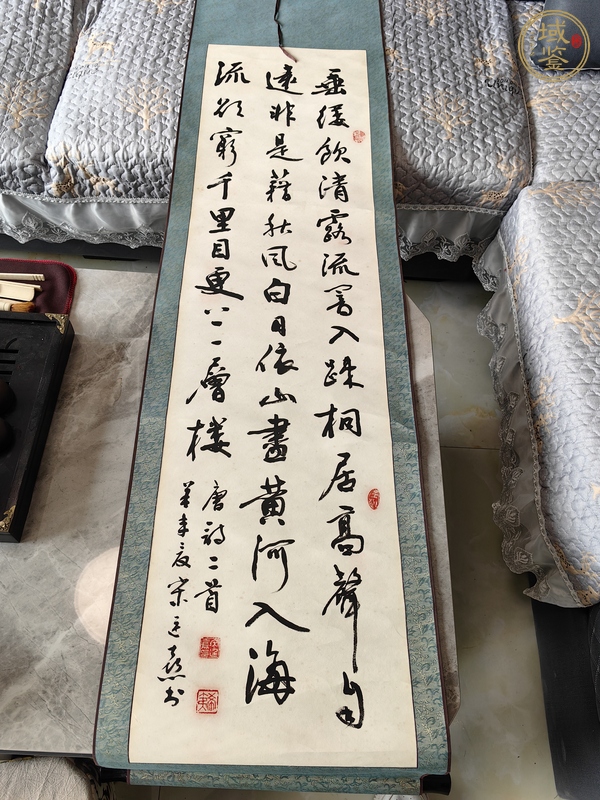 垂緌飲清露流響入疎桐居高聲自
遠非是藉秋風白日依山盡黄河入海
流欲窮千里目更上一層楼
唐詩二首
年夏宋书
域鉴